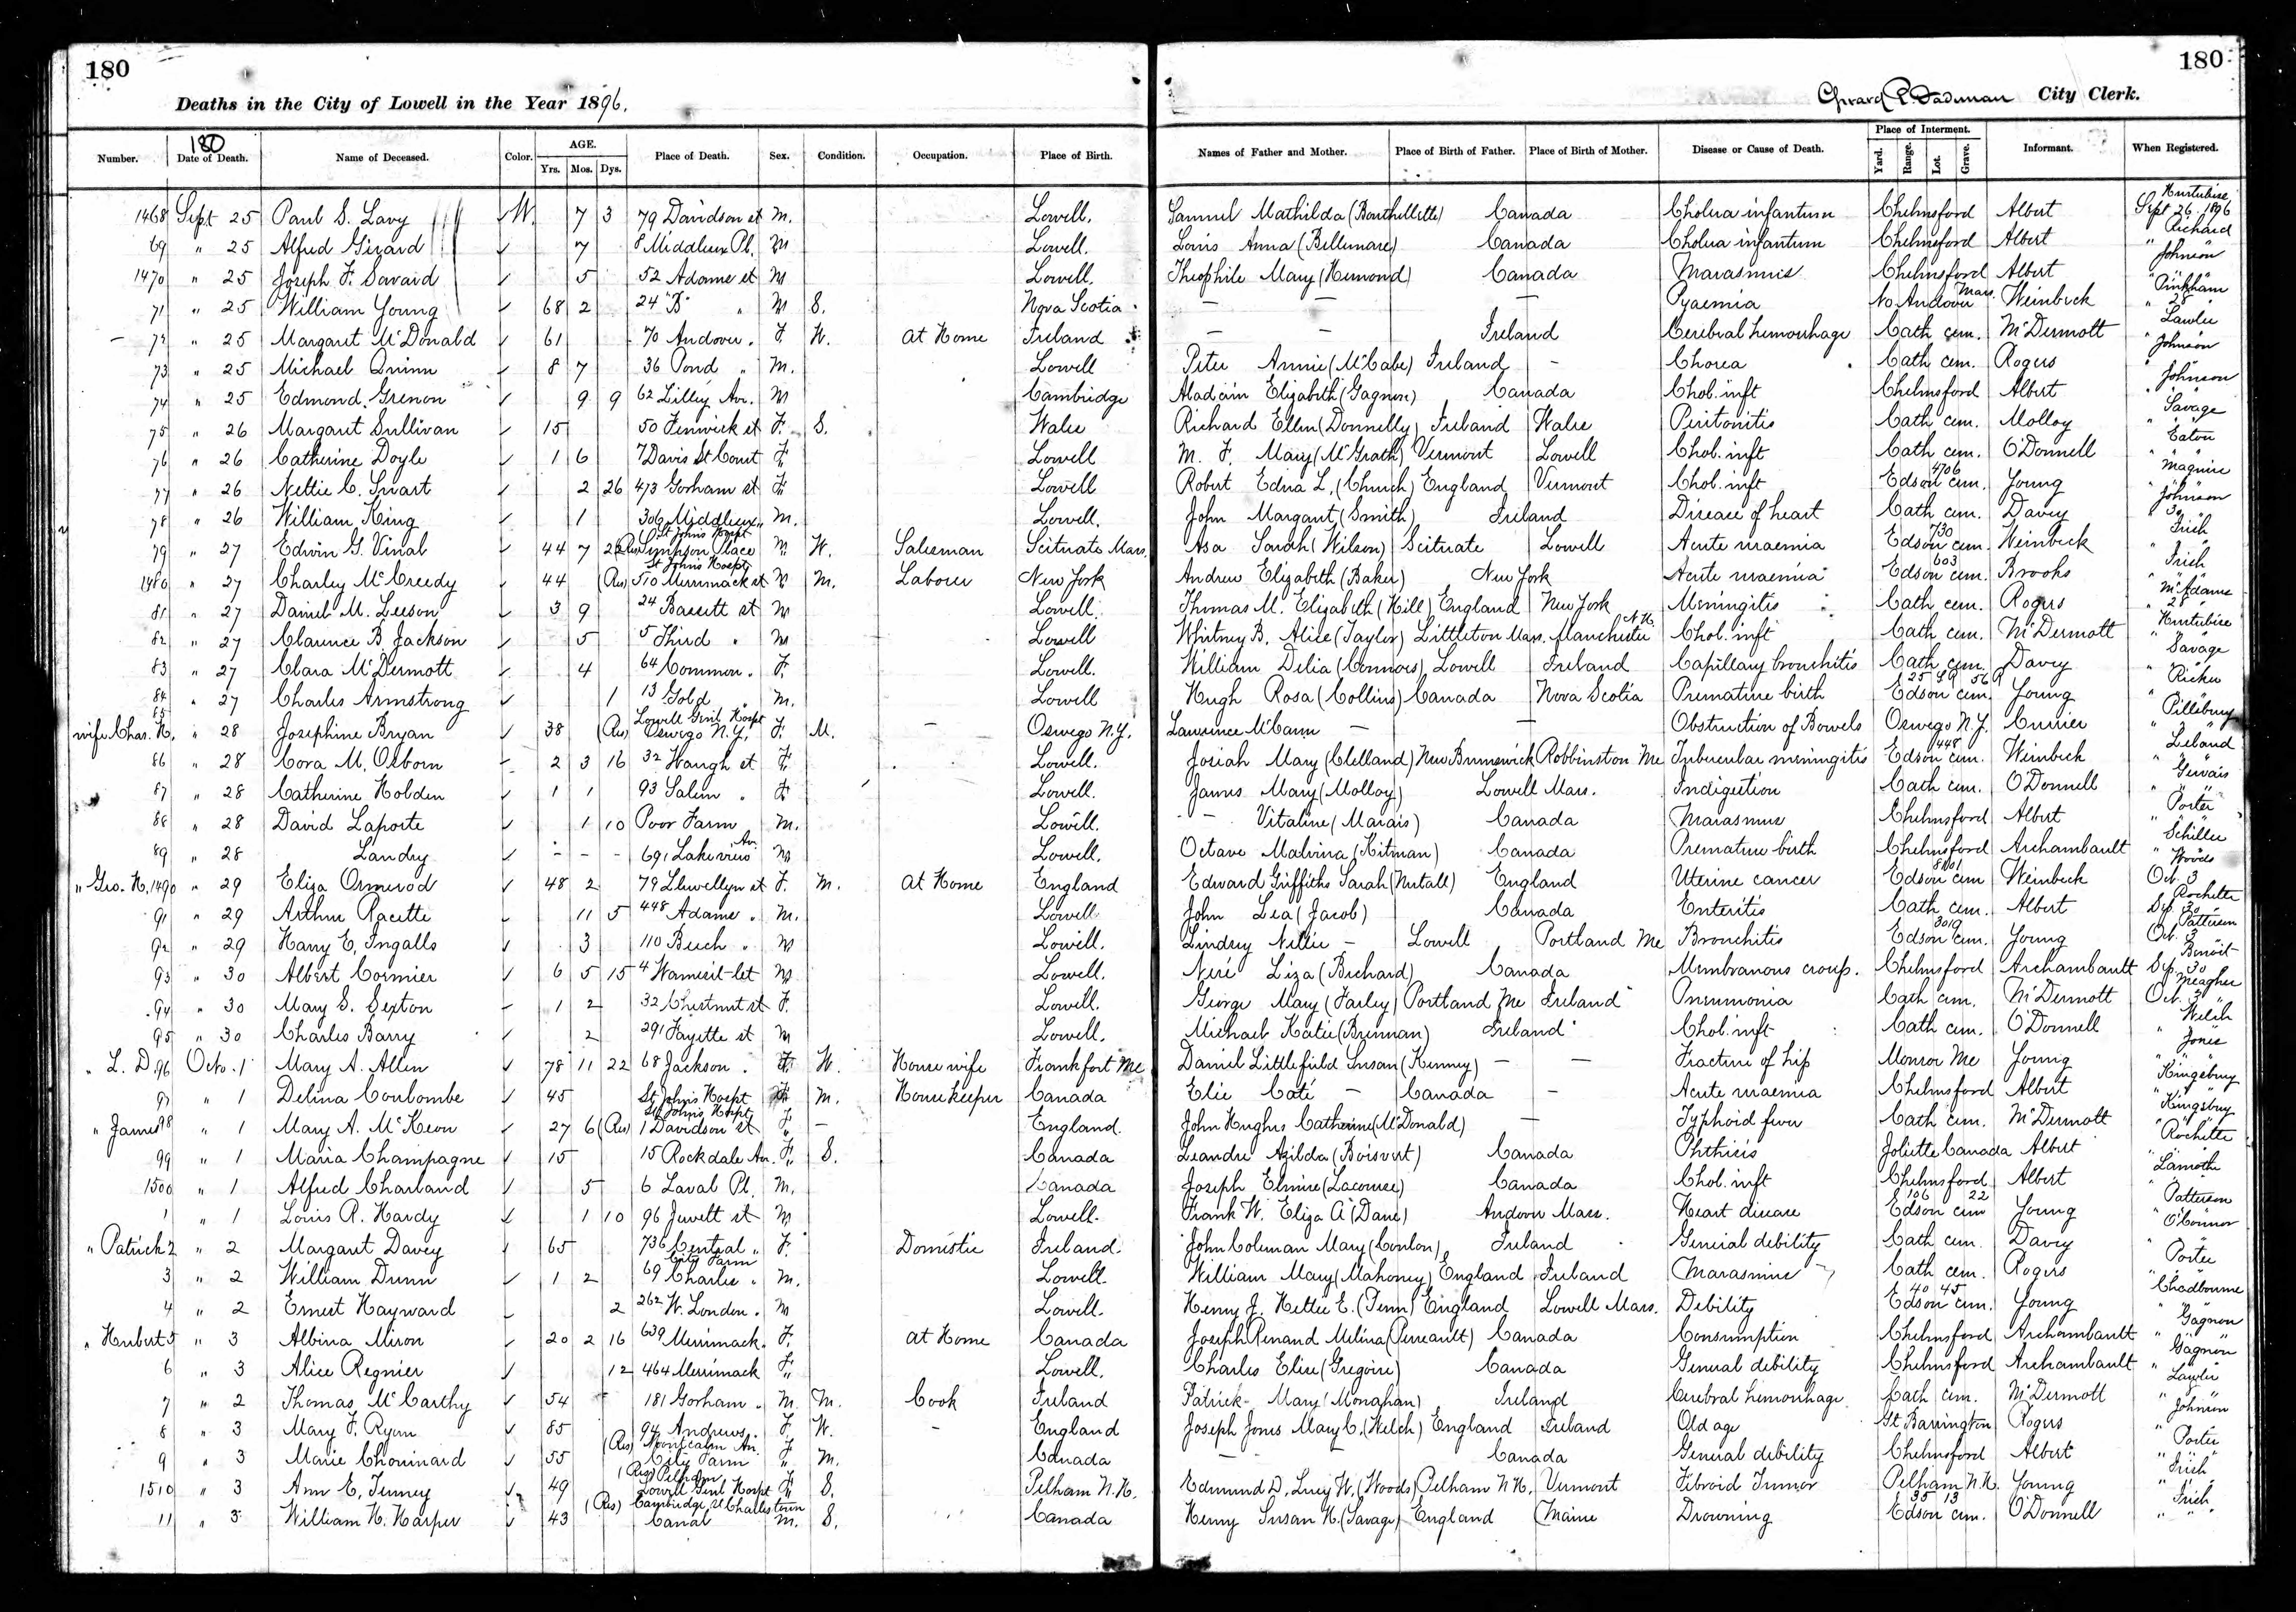 180
180
Deaths in the City of Lowell in the Year 1896.
City Clerk.
180
Number. Date of Death. Name of Deceased. Color. AGE. Yrs. Mos. Dys. Place of Death. Sex. Condition. Occupation. Place of Birth. Names of Father and Mother. Place of Birth of Father. Place of Birth of Mother. Disease or Cause of Death. Place of Interment. Yard. Range. Lot. Grave. Informant. When Registered.
1468 Sept 25 Paul S. Lavy W. 7 3 79 Davidson st M. Lowell. Samuel Mathilda (Bouthellette) Canada Cholera infantum Chelmsford Albert Hurtubise Sept 26 1896
69 " 25 Alfred Girard 7 8 Middlesex Pl. M Lowell. Louis Anna (Bellemare) Canada Cholera infantum Chelmsford Albert Richard
1470 " 25 Joseph F. Savard 5 52 Adams st M Lowell. Theophile Mary (Hemond) Canada Marasmus Chelmsford Albert Johnson
71 " 25 William Young 68 2 24 "B" " M S. Nova Scotia — — — Pyaemia No Andover Mass. Weinbeck Pinkham 28
72 " 25 Margaret McDonald 61 70 Andover . F W. At Home Ireland — — Ireland Cerebral hemorrhage Cath cem. McDermott Lawler
73 " 25 Michael Quinn 8 7 36 Pond " M. Lowell Peter Annie (McCabe) Ireland - Chorea Cath cem. Rogers Johnson
74 " 25 Edmond Grenon 9 9 62 Lilley Av. M Cambridge Elizabeth (Gagnon) Canada Chol. inft Chelmsford Albert Johnson
75 " 26 Margaret Sullivan 15 50 Fenwick st F. S. Wales Richard Ellen (Donnelly) Ireland Wales Peritonitis Cath cem. Molloy Savage
76 " 26 Catherine Doyle 1 6 7 Davis St Court F. Lowell M. F. Mary (McGrath) Vermont Lowell Chol. inft Cath cem. O'Donnell Eaton
77 " 26 Nettie C. Swart 2 26 473 Gorham st F. Lowell Robert Edna L. (Church) England Vermont Chol. inft Edson cem. 4706 Young Maguire
78 " 26 William King 1 306 Middlesex " M. Lowell. John Margaret (Smith) Ireland Disease of heart Cath cem. Davey Johnson 30
79 " 27 Edwin G. Vinal 44 7 22 St Johns Hospt (Res) Simpson Place M W. Salesman Scituate Mass. Asa Sarah (Wilson) Scituate Lowell Acute uraemia Edson cem. 730 Weinbeck Irish
1480 " 27 Charley McCreedy 44 St Johns Hospt (Res) 510 Merrimack st M M. Laborer New York Andrew Elizabeth (Baker) New York Acute uraemia Edson cem. 603 Brooks Irish
81 " 27 Daniel M. Leeson 3 9 24 Bassett st M Lowell. Thomas M. Elizabeth (Hill) England New York Meningitis Cath cem. Rogers McAdams
82 " 27 Clarence B. Jackson 5 5 Third " M Lowell Whitney B. Alice (Taylor) Littleton Mass. Manchester N.H. Chol. inft Cath cem. McDermott 28 Hurtubise
83 " 27 Clara McDermott 4 64 Common . F. Lowell. William Delia (Connors) Lowell Ireland Capillary bronchitis Cath cem. Davey Savage
84 " 27 Charles Armstrong 1 13 Gold . M. Lowell Hugh Rosa (Collins) Canada Nova Scotia Premature birth Edson cem. Young Ricker
85 wife Chas. H. " 28 Josephine Bryan 38 Lowell Genl Hospt (Res) Oswego N.Y. F. M. — Oswego N.Y. Lawrence McCann — — Obstruction of Bowels Oswego N.Y. Currier Pillsbury
86 " 28 Cora M. Osborn 2 3 16 32 Waugh st F. Lowell. Josiah Mary (Clelland) New Brunswick Robbinston Me Tubercular meningitis Edson cem. 448 Weinbeck Leland
87 " 28 Catherine Holden 1 1 93 Salem . F Lowell. James Mary (Molloy) Lowell Mass. Indigestion Cath cem. O'Donnell Gervais
88 " 28 David Laporte 1 10 Poor Farm M. Lowell. - Vitaline (Marais) Canada Marasmus Chelmsford Albert Porter
89 " 28 Landry - - - 691 Lakeview Av. M Lowell. Octave Malvina (Kitman) Canada Premature birth Chelmsford Archambault Schiller
" Geo. H. 1490 " 29 Eliza Ormerod 48 2 79 Llewellyn st F. M. At Home England Edward Griffiths Sarah (Nutall) England Uterine cancer Edson cem 8001 Weinbeck Woods Oct. 3
91 " 29 Arthur Racette 11 5 448 Adams . M. Lowell. John Lea (Jacob) Canada Enteritis Cath cem. Albert Rochette Sep. 30
92 " 29 Harry E. Ingalls 3 110 Beech " M Lowell. Lindrey Nellie - Lowell Portland Me Bronchitis Edson cem. 3019 Young Patterson Oct. 3
93 " 30 Albert Cormier 6 5 15 4 Wamesit-let M. Lowell. Neré Liza (Richard) Canada Membranous croup. Chelmsford Archambault Benoit Sep. 30
94 " 30 Mary S. Sexton 1 2 32 Chestnut st F. Lowell. George Mary (Farley) Portland Me Ireland Pneumonia Cath cem. McDermott Meagher Oct. 3
95 " 30 Charles Barry 2 291 Fayette st M Lowell. Michael Katie (Brennan) Ireland Chol. inft Cath cem. O'Donnell Welch
" L. D. 96 Octo. 1 Mary A. Allen 78 11 22 68 Jackson . F. W. House wife Frankfort Me Daniel Littlefield Susan (Kenny) — — Fracture of hip Monroe Me Young Jones
97 " 1 Delina Coulombe 45 St Johns Hospt F M. Housekeeper Canada Elie Caté — Canada - Acute uraemia Chelmsford Albert Kingsbury
" James 98 " 1 Mary A. McKeon 27 6 St Johns Hospt (Res) 1 Davidson st F. — England. John Hughes Catherine (McDonald) — Typhoid fever Cath cem. McDermott Kingsbury
99 " 1 Maria Champagne 15 15 Rockdale Av. F. S. Canada Leandre Azilda (Boisvert) Canada Phthisis Joliette Canada Albert Rochette
1500 " 1 Alfred Charland 5 6 Laval Pl. M. Canada Joseph Elmire (Lacourse) Canada Chol. inft Chelmsford Albert Lamothe
1 " 1 Louis R. Hardy 1 10 96 Jewett st M Lowell. Frank W. Eliza A (Dane) Andover Mass. Heart disease Edson cem 106 22 Young Patterson
" Patrick 2 " 2 Margaret Davey 65 736 Central " F. Domestic Ireland. John Coleman Mary (Conlon) Ireland General debility Cath cem. Davey O'Connor
3 " 2 William Dunn 1 2 City Farm 69 Charles " M. Lowell. William Mary (Mahoney) England Ireland Marasmus Cath cem. Rogers Porter
4 " 2 Ernest Hayward 2 262 W. London . M Lowell. Henry J. Hettie E. (Fenn) England Lowell Mass. Debility Edson cem. 40 45 Young Chadbourne
" Herbert 5 " 3 Albina Miron 20 2 16 639 Merrimack. F. At Home Canada Joseph Renand Melina (Perreault) Canada Consumption Chelmsford Archambault Gagnon
6 " 3 Alice Regnier 12 464 Merrimack F. Lowell. Charles Elise (Gregoire) Canada General debility Chelmsford Archambault Gagnon
7 " 2 Thomas McCarthy 54 181 Gorham . M. M. Cook Ireland Patrick Mary (Monaghan) Ireland Cerebral hemorrhage Cath cem. McDermott Lawler
8 " 3 Mary F. Ryan 85 94 Andrews . F. W. - England Joseph Jones Mary C. (Welch) England Ireland Old age Gt Barrington Rogers Johnson
9 " 3 Marie Chouinard 55 (Res) Montcalm Av. City Farm F. M. Canada — Canada General debility Chelmsford Albert Porter
1510 " 3 Ann E. Tenney 49 (Res) Pelham Lowell Genl Hospt F S. Pelham N.H. Edmund D. Lucy W. (Woods) Pelham N.H. Vermont Fibroid Tumor Pelham N.H. Young Irish
11 " 3 William H. Harper 43 (Res) Cambridge st Charlestown Canal M. S. Canada Henry Susan H. (Savage) England Maine Drowning Edson cem. 35 13 O'Donnell Irish